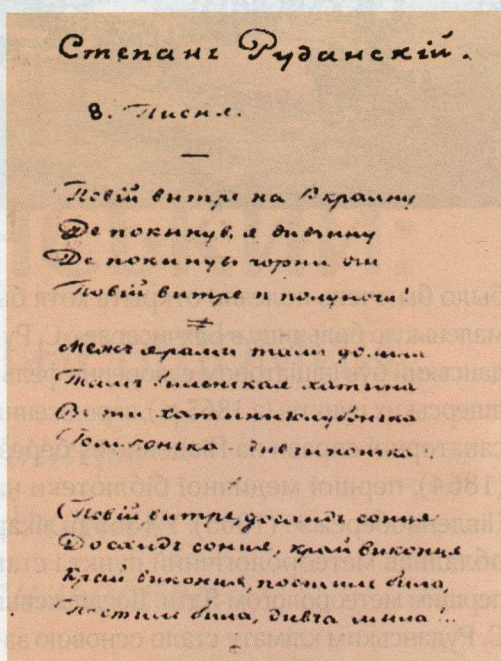 Степанъ Рудaнскій.
8. Писня.
Повій витре на Вкраину
Де покинув, я дивчину
Де покинувъ чорни очи
Повій витре и полуночи!
Межъ ярами тамъ долина
Тамъ биленькая хатына
В ти хатынци голубонька
Голубонька - дивчинонька.
Повій витре до схидъ сонця
До схидъ сонця, край виконця
Край виконця, постиль била,
Постиль била, дивча мила!..